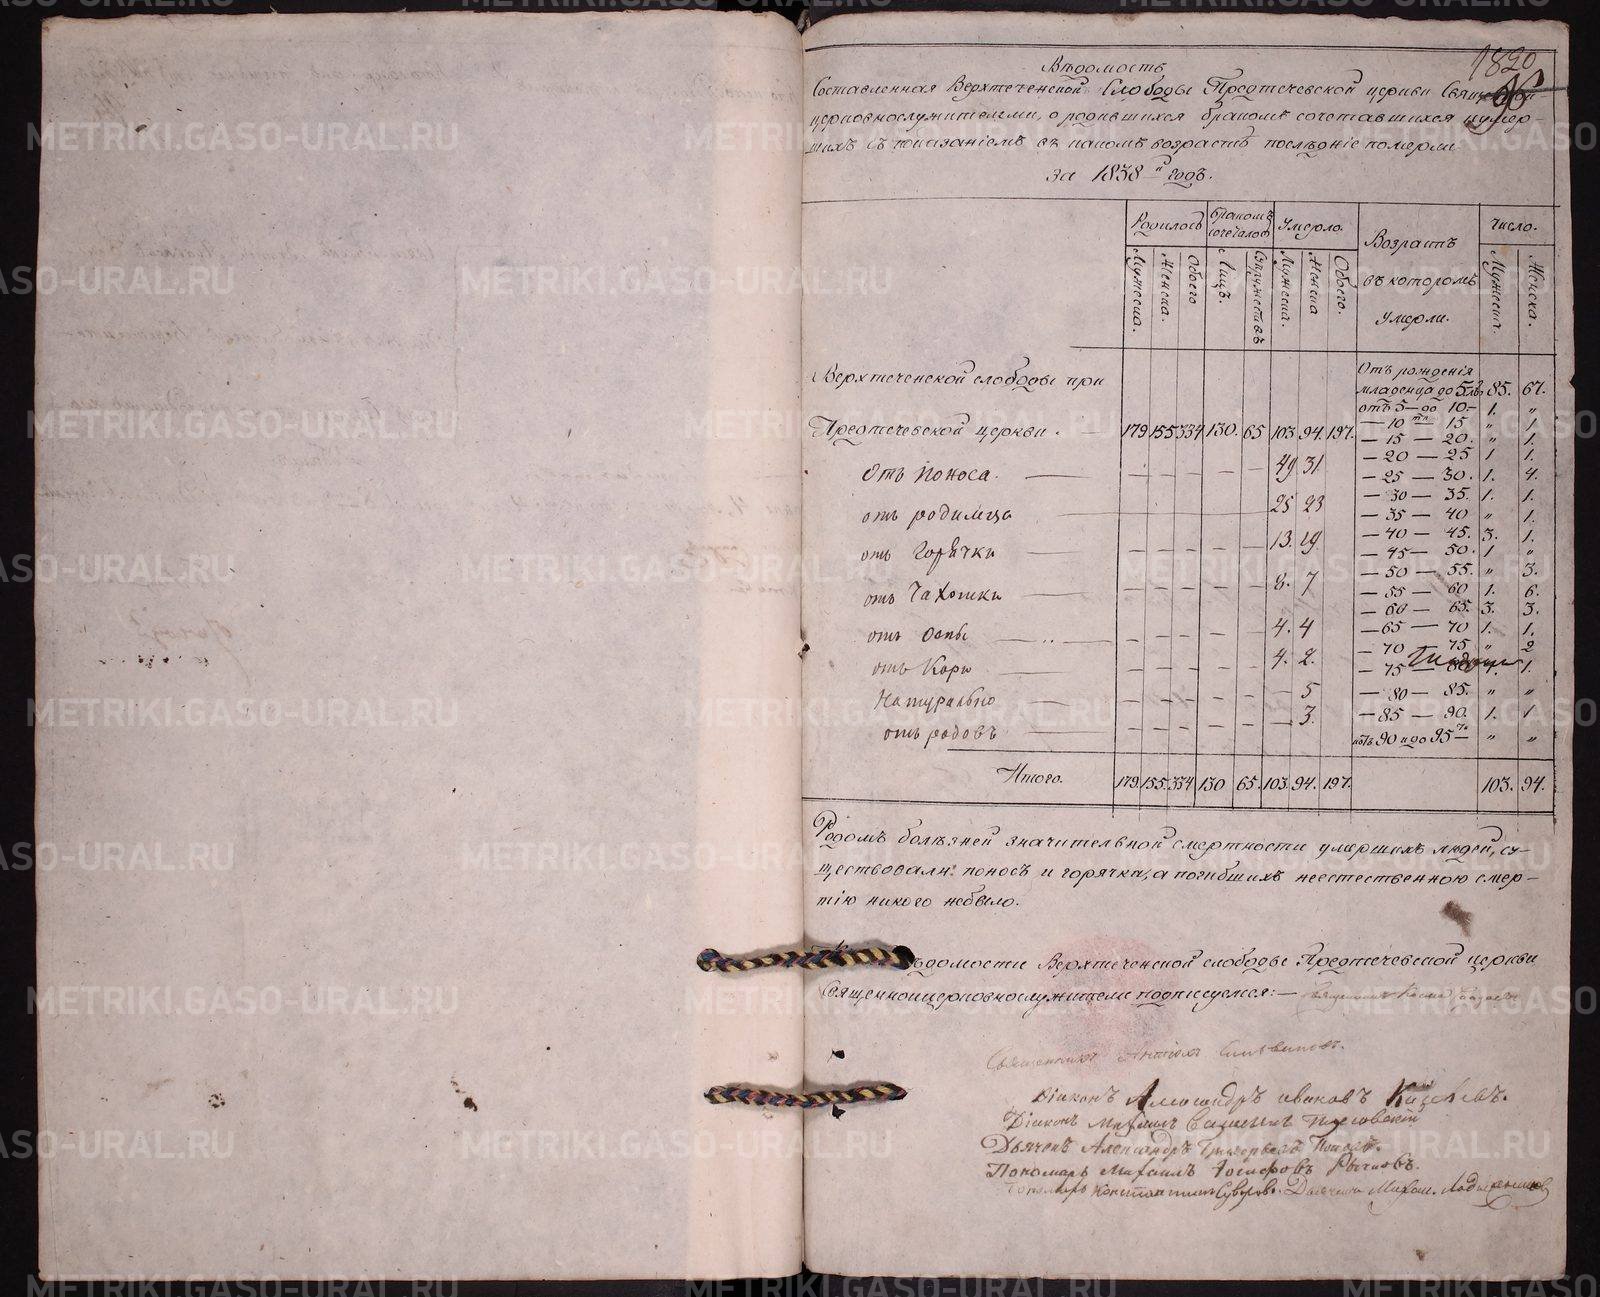 1820
96
Вѣдомость
Составленная Верхтеченской Слободы Предтечевской церкви Священно-
церковнослужителями, о родившихся бракомъ сочетавшихся и умер-
шихъ съ показаніемъ въ какомъ возрастѣ послѣдніе померли
за 1838й годъ.
Родилось Бракомъ сочеталось Умерло. Возрастъ въ которомъ умерли. Число.
Мужеска. Женска. Обоего Лицъ. Супружествъ Мужеска. Женска Обоего. Мужеска. Женска.
Верхтеченской слободы при
Предтечевской церкви. 179 155 334 130. 65 103. 94. 197.
Отъ рожденія
младенца до 5 лѣ. 85. 67.
отъ 5 — до 10 — 1. „
— 10 — 15 „ 1.
— 15 — 20. „ 1.
Отъ поноса. — — — — — 49 31.
— 20 — 25 1 1.
— 25 — 30. 1. 4.
отъ родимца 25 23
— 30 — 35. 1. 1.
— 35 — 40 „ 1.
отъ Горячки — — — — — 13. 19.
— 40 — 45. 3. 1.
— 45 — 50. 1 „
отъ Чахотки — — — — — 8. 7
— 50 — 55. „ 3.
— 55 — 60 1. 6.
отъ Оспы — — — — — 4. 4
— 60 — 65. 3. 3.
— 65 — 70 1. 1.
отъ Кори — — — — — 4. 2.
— 70 — 75 „ 2
— 75 — 80 1.
Натурально — — — — — — 5
— 80 — 85. „ „
отъ родовъ — — — — — — 3.
— 85 — 90. 1. 1
90 и до 95 „ „
Итого. 179. 155. 334 130 65. 103. 94. 197. 103. 94.
Родомъ болѣзней значительной смертности умершихъ людей, су-
ществовали: поносъ и горячка, а погибшихъ неестественною смер-
тію никого небыло.
Вѣдомости Верхтеченской слободы Предтечевской церкви
Священноицерковнослужители подписуемся: —
Священникъ
Діаконъ Александръ Ивановъ
Діаконъ Михаилъ
Дьячекъ Александръ Григорьевъ Поповъ.
Пономарь Михаилъ Іосифовъ Рычковъ.
Пономарь Константинъ Суворовъ. Дьячекъ Михаи.
METRIKI.GASO-URAL.RU